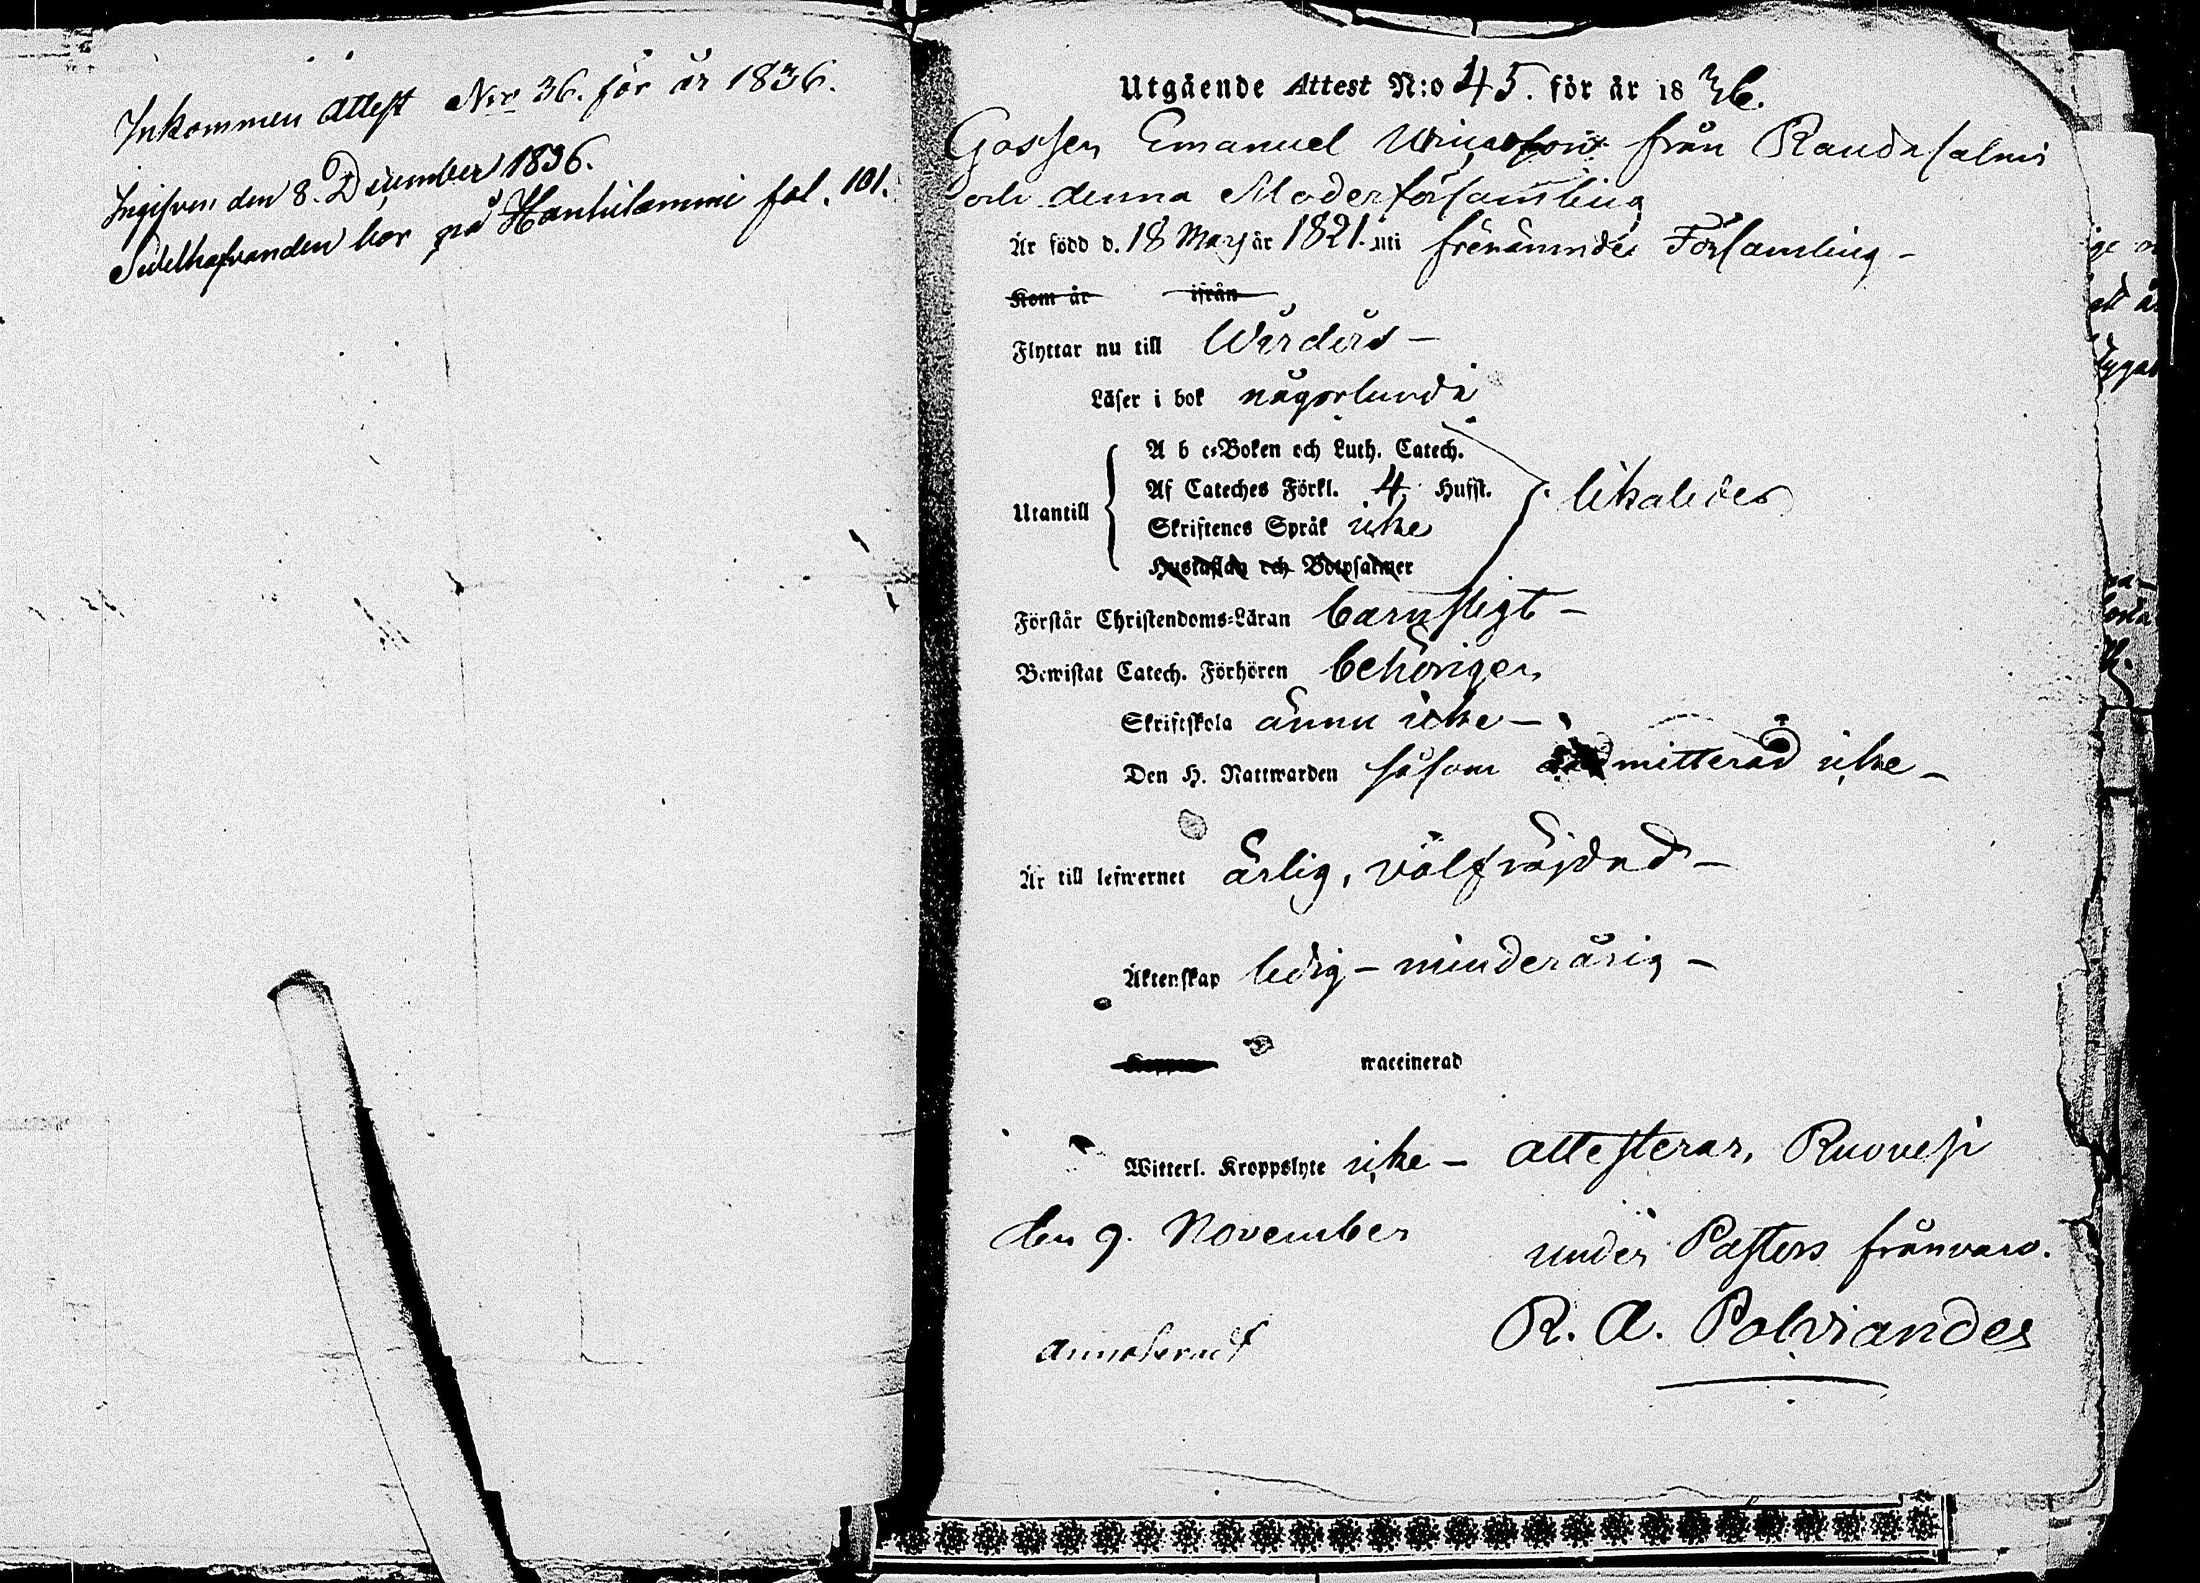 Inkommen Attest Nro 36. för år 1836.
Ingifven den 8. December 1836.
Innehafvanden bor på Hanhilammi fol. 101.
Utgående Attest N:o 45. för år 1836.
Gossen Emanuel från Raudasalmi
och denna Moderförsamling
Är född d. 18 Mars år 1821. uti förenämnde Församling –
Kom år ifrån
Flyttar nu till Wirdois –
Läser i bok någorlunda
A b c-Boken och Luth. Catech.
Utantill
Af Cateches Förkl. 4 Hufst.
likaledes
Skriftenes Språk icke
Hustaflan och Botpsalmer
Förstår Christendoms-Läran barnsligt –
Bewistat Catech. Förhören behörigen
Skriftskola ännu icke –
Den H. Nattwarden såsom admitterad icke –
Är till lefwernet ärlig, välfräjdad –
Äktenskap ledig – minderårig –
Koppor waccinerad
Witterl. Kroppslyte icke – attesterar, Ruovesi
den 9. November
under Pastors frånvaro.
R. A. Polviander